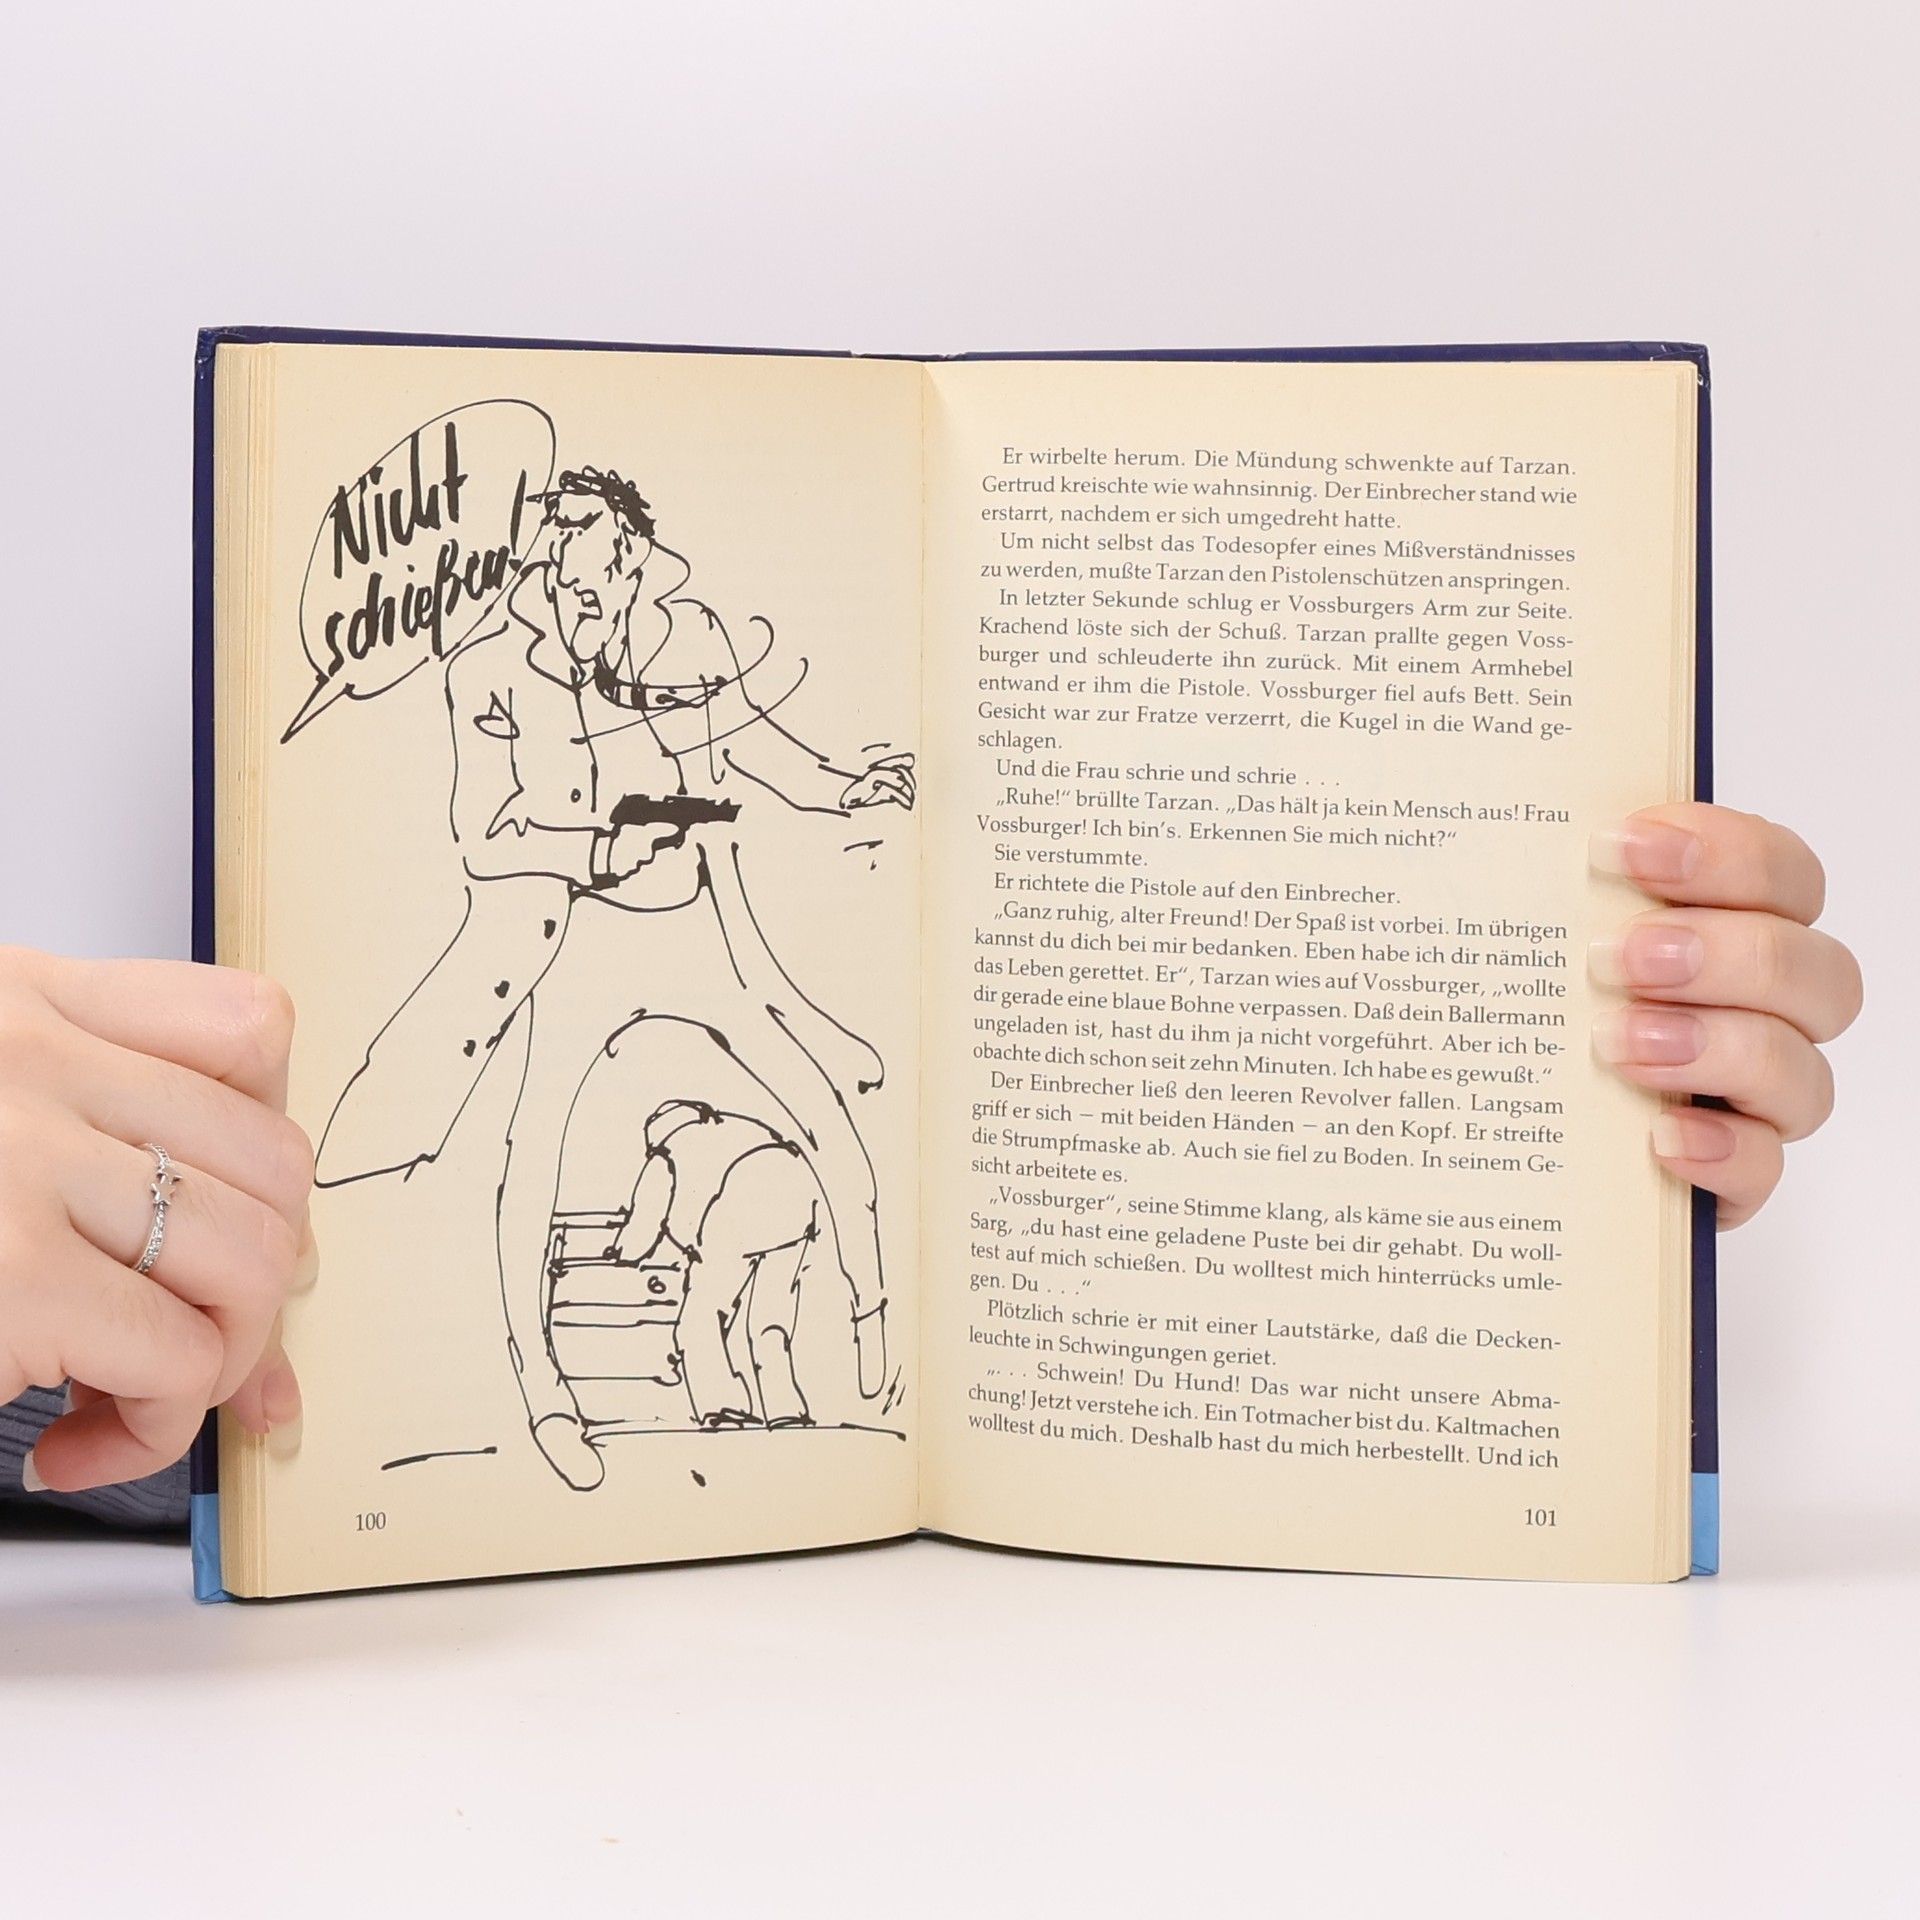 Nicht
schießen!
100
Er wirbelte herum. Die Mündung schwenkte auf Tarzan.
Gertrud kreischte wie wahnsinnig. Der Einbrecher stand wie
erstarrt, nachdem er sich umgedreht hatte.
Um nicht selbst das Todesopfer eines Mißverständnisses
zu werden, mußte Tarzan den Pistolenschützen anspringen.
In letzter Sekunde schlug er Vossburgers Arm zur Seite.
Krachend löste sich der Schuß. Tarzan prallte gegen Voss-
burger und schleuderte ihn zurück. Mit einem Armhebel
entwand er ihm die Pistole. Vossburger fiel aufs Bett. Sein
Gesicht war zur Fratze verzerrt, die Kugel in die Wand ge-
schlagen.
Und die Frau schrie und schrie . . .
„Ruhe!“ brüllte Tarzan. „Das hält ja kein Mensch aus! Frau
Vossburger! Ich bin’s. Erkennen Sie mich nicht?“
Sie verstummte.
Er richtete die Pistole auf den Einbrecher.
„Ganz ruhig, alter Freund! Der Spaß ist vorbei. Im übrigen
kannst du dich bei mir bedanken. Eben habe ich dir nämlich
das Leben gerettet. Er“, Tarzan wies auf Vossburger, „wollte
dir gerade eine blaue Bohne verpassen. Daß dein Ballermann
ungeladen ist, hast du ihm ja nicht vorgeführt. Aber ich be-
obachte dich schon seit zehn Minuten. Ich habe es gewußt.“
Der Einbrecher ließ den leeren Revolver fallen. Langsam
griff er sich – mit beiden Händen – an den Kopf. Er streifte
die Strumpfmaske ab. Auch sie fiel zu Boden. In seinem Ge-
sicht arbeitete es.
„Vossburger“, seine Stimme klang, als käme sie aus einem
Sarg, „du hast eine geladene Puste bei dir gehabt. Du woll-
test auf mich schießen. Du wolltest mich hinterrücks umle-
gen. Du . . .“
Plötzlich schrie er mit einer Lautstärke, daß die Decken-
leuchte in Schwingungen geriet.
„. . . Schwein! Du Hund! Das war nicht unsere Abma-
chung! Jetzt verstehe ich. Ein Totmacher bist du. Kaltmachen
wolltest du mich. Deshalb hast du mich herbestellt. Und ich
101